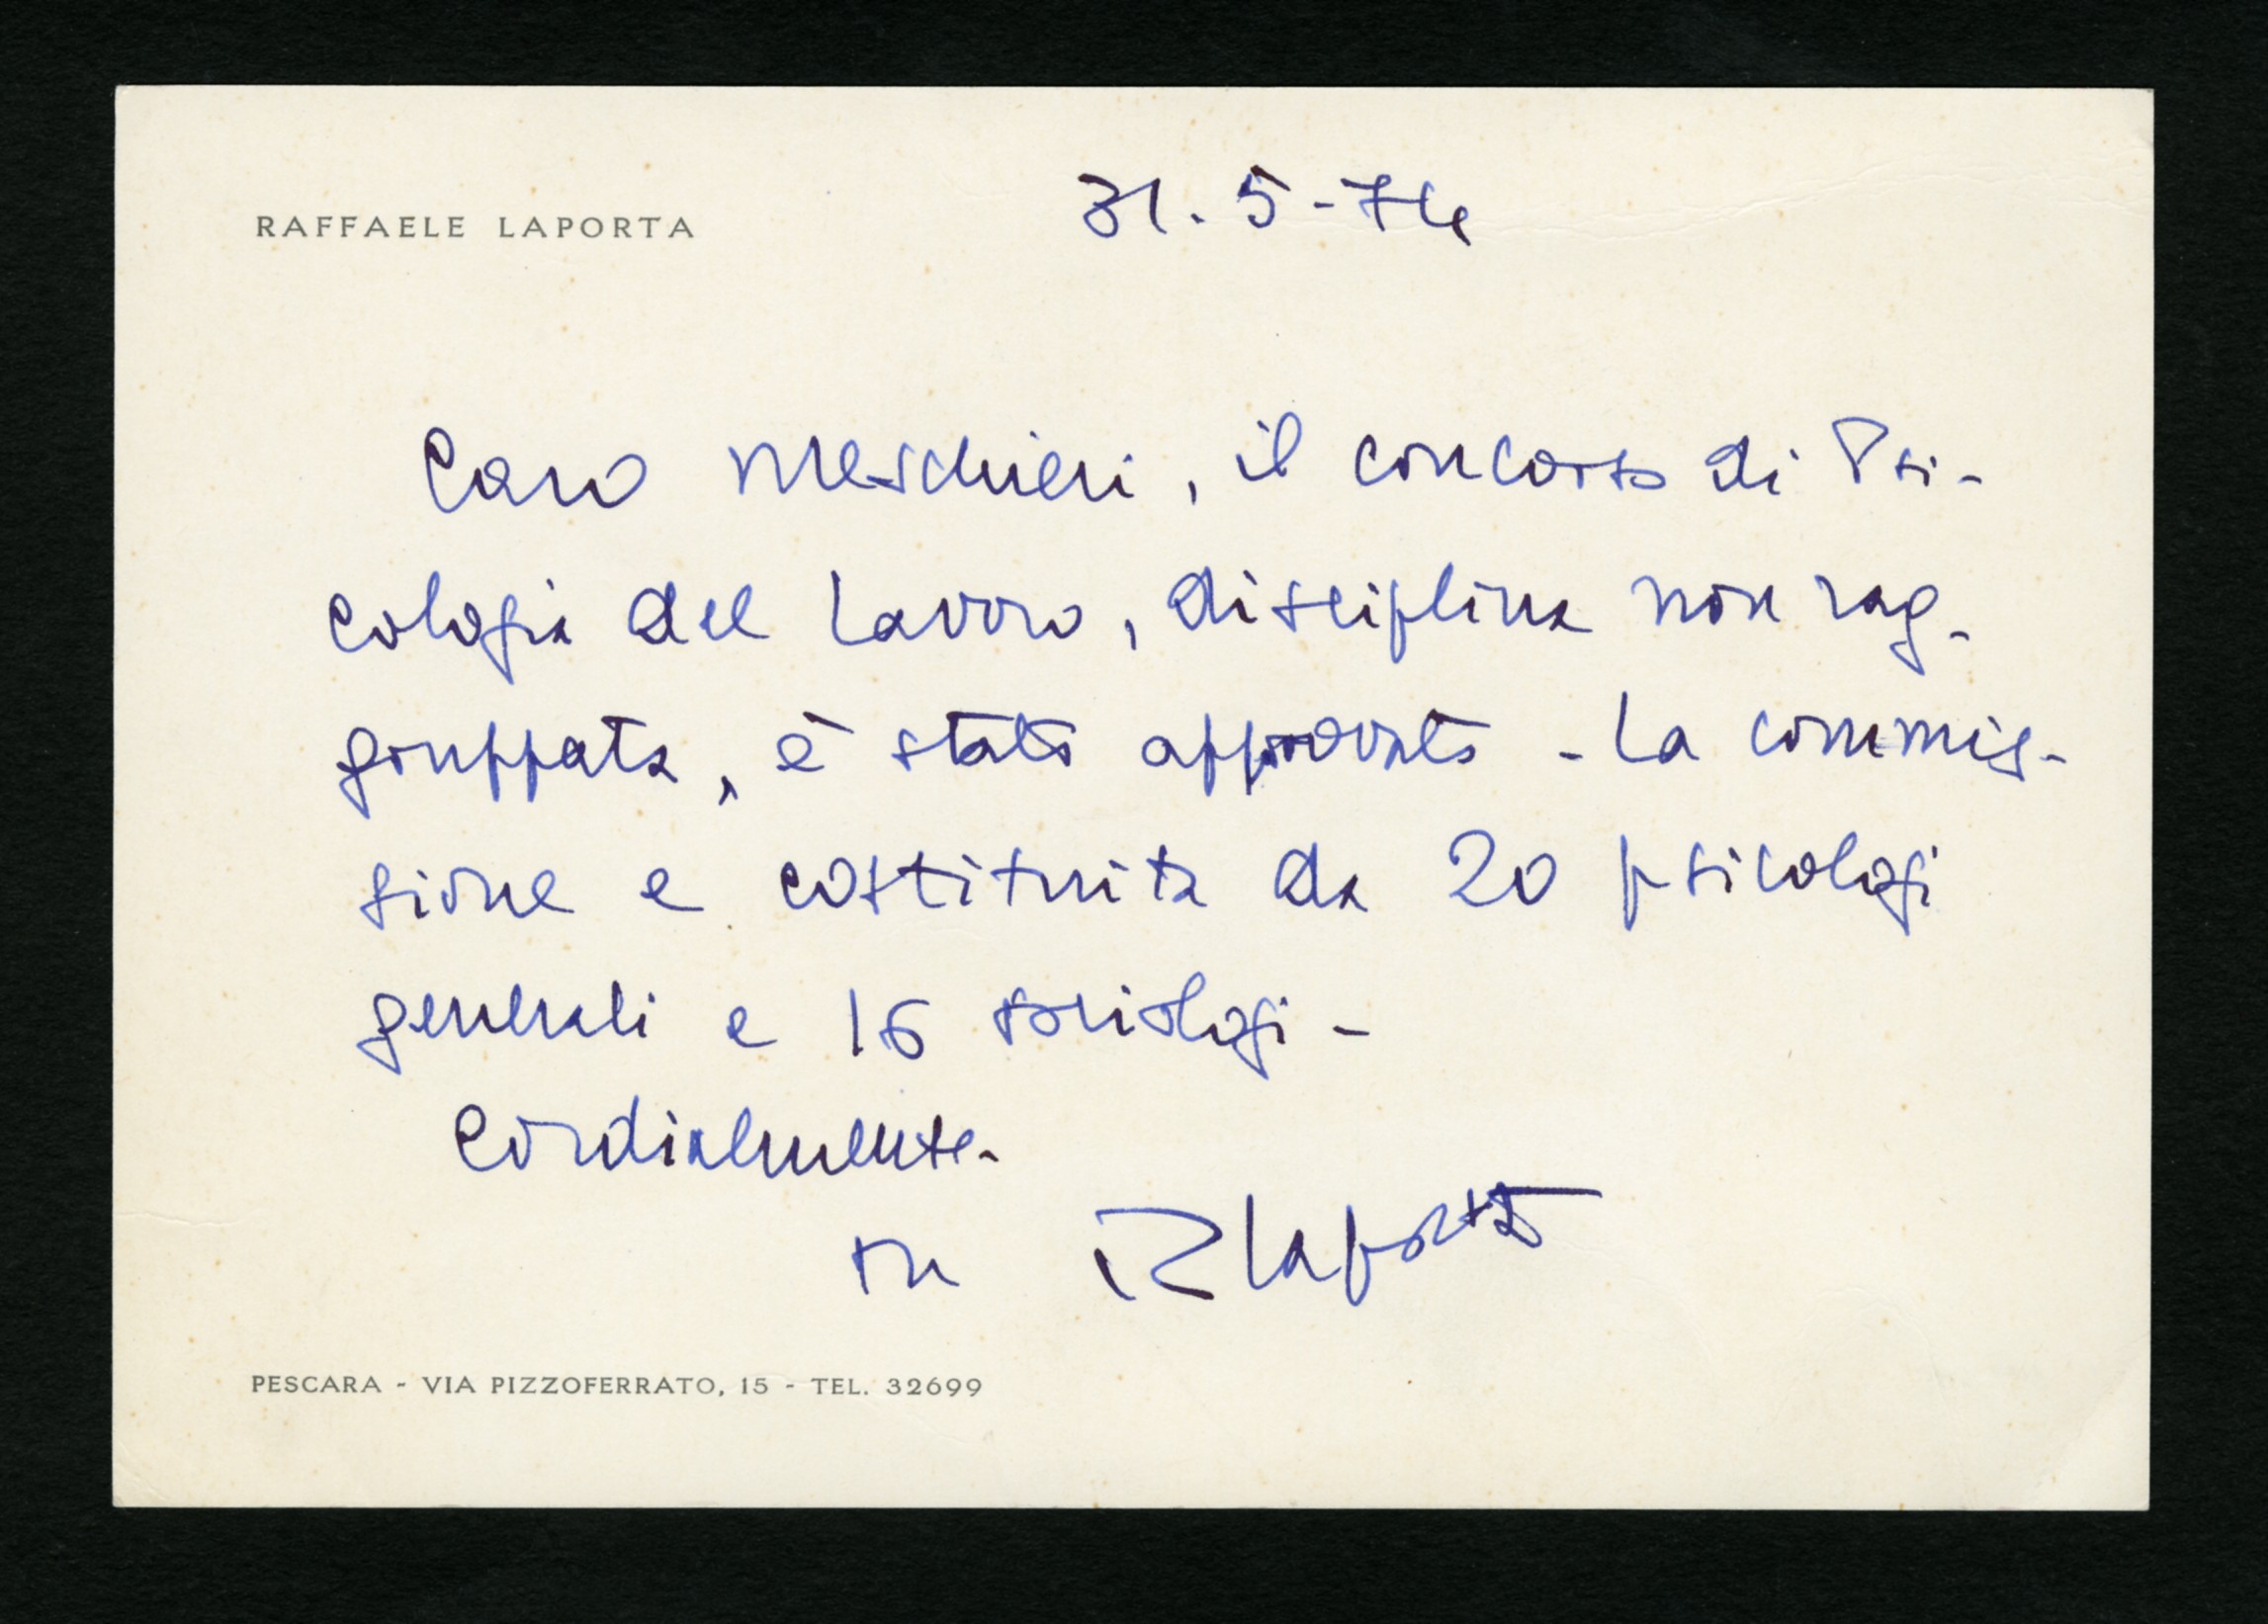 RAFFAELE LAPORTA
31.5-74
Caro Meschieri, il concorso di Psi-
cologia del Lavoro, disciplina non rag-
gruppata, è stato approvato - La commis-
sione e costituita da 20 psicologi
generali e 16 sociologi -
Cordialmente.
tu RLaporta
PESCARA - VIA PIZZOFERRATO, 15 - TEL. 32699